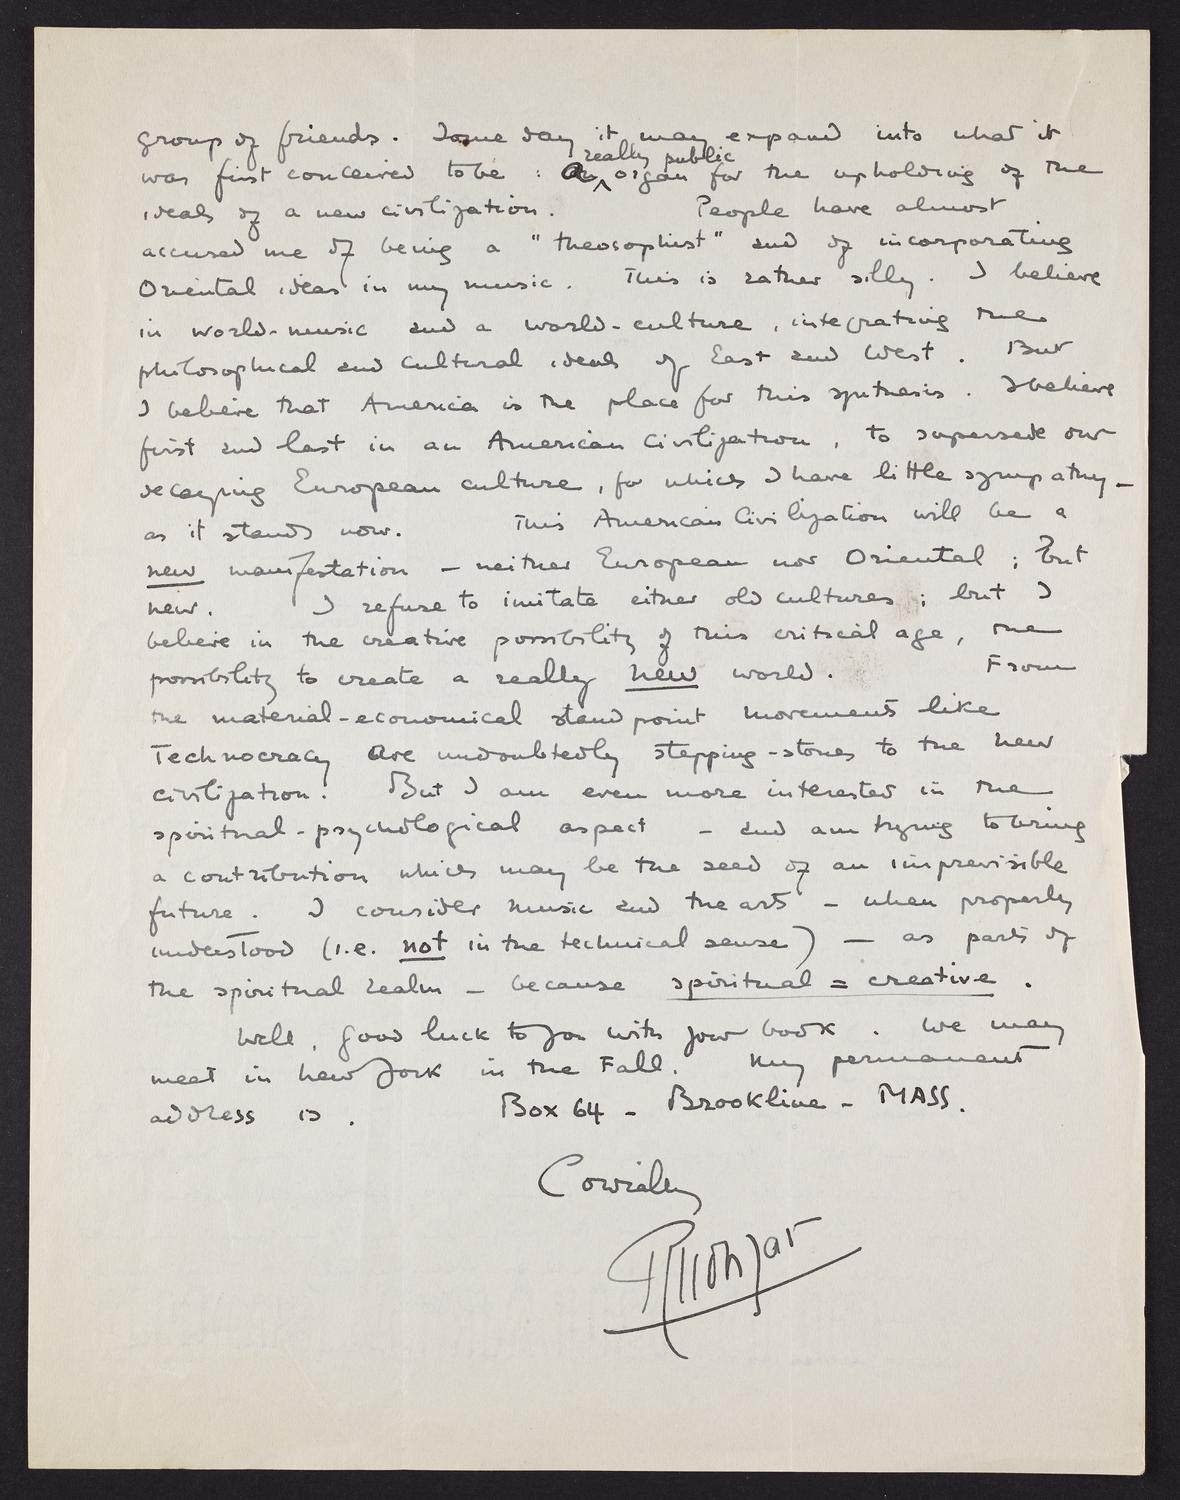 group of friends. Some day it may expand into what it
really public
was first conceived to be : a organ for the upholding of the
ideals of a new civilization. People have almost
accused me of being a "theosophist" and of incorporating
Oriental ideas in my music. This is rather silly. I believe
in world-music and a world-culture, integrating the
philosophical and cultural ideals of East and West. But
I believe that America is the place for this synthesis. I believe
first and last in an American Civilization, to supersede our
decaying European culture, for which I have little sympathy -
as it stands now. This American Civilization will be a
new manifestation - neither European nor Oriental; but
new. I refuse to imitate either old cultures; but I
believe in the creative possibility of this critical age, the
possibility to create a really new world. From
the material-economical standpoint movements like
Technocracy are undoubtedly stepping-stones to the new
civilization. But I am even more interested in the
spiritual-psychological aspect - and am trying to bring
a contribution which may be the seed of an imprevisible
future. I consider music and the arts - when properly
understood (i.e. not in the technical sense) - as parts of
the spiritual realm - because spiritual = creative.
Well, good luck to you with your book. We may
meet in New York in the Fall. My permanent
address is. Box 64 - Brookline - MASS.
Cordially